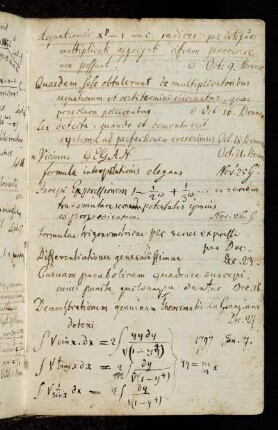 Aequationis x^p − 1 = 0 radices per integros
multiplicatae aggregati cifram producere
non possunt. Oct. 9. Brunsv.
Quaedam sese obtulerunt de multiplicatoribus
aequationum ut certi termini
praeclara pollicentur. Oct. 16. Brunsv.
Lex detecta: quando et
systema ad perfectionem evexerimus Oct. 18. Brunsv.
Vicimus GEGAN. Oct. 21. Brunsv.
formula interpolationis elegans Nov. 25 G.
Incepi expressionem 1 − 1/2^ω + 1/3^ω in seriem
transmutare secundum potestates ipsius
ω progredientem. Nov. 26 G.
formulae trigonometricae per series expressae
per Dec.
Differentiationes generalissimae Dec. 23.
Curvam parabolicam quadrare suscepi,
cuius puncta quotcunque dantur Dec. 26.
Demonstrationem genuinam theorematis La Grangiani
detexi Dec. 27.
∫ √sin x . dx = 2 ∫ yy dy / √(1 − y^4) 1797 Jan. 7.
∫ √tang x dx = 2 ∫ dy / √(1 − y^4) yy = x
∫ √(1/sin x) dx = 2 ∫ dy / √(1 − y^4)